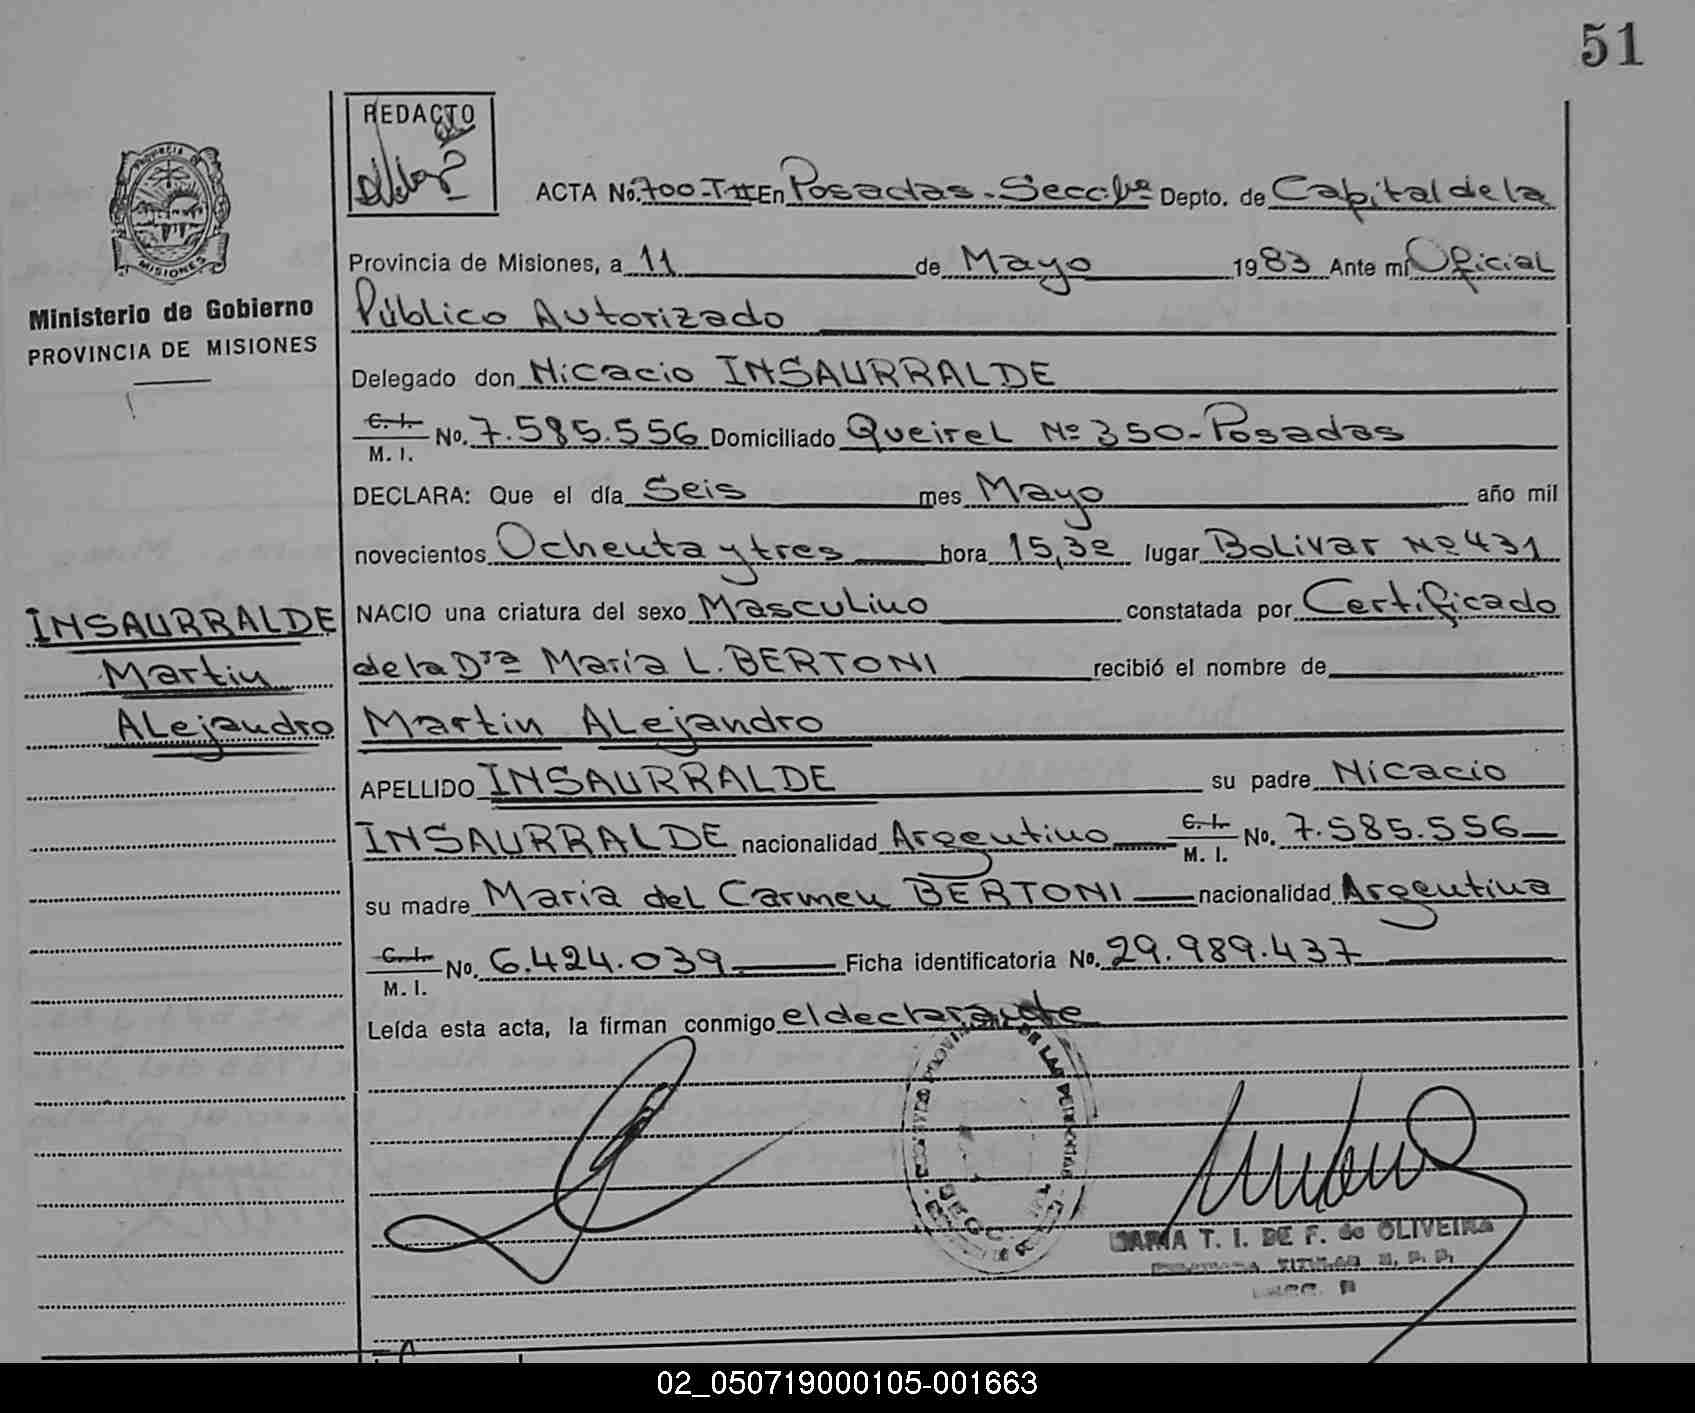 51
REDACTO
PROVINCIA DE
MISIONES
Ministerio de Gobierno
PROVINCIA DE MISIONES
ACTA No. 700-T II En Posadas - Secc. 1ª Depto. de Capital de la
Provincia de Misiones, a 11 de Mayo 1983 Ante mí Oficial
Público Autorizado
Delegado don Nicacio INSAURRALDE
C. I. M. I. No. 7.585.556 Domiciliado Queirel Nº 350-Posadas
DECLARA: Que el día Seis mes Mayo año mil
novecientos Ochenta y tres hora 15,30 lugar Bolivar Nº 431
NACIO una criatura del sexo Masculino constatada por Certificado
de la Dra María L. BERTONI recibió el nombre de
Martin Alejandro
APELLIDO INSAURRALDE su padre Nicacio
INSAURRALDE nacionalidad Argentino C. I. M. I. No. 7.585.556
su madre Maria del Carmen BERTONI nacionalidad Argentina
C. I. M. I. No. 6.424.039 Ficha identificatoria No. 29.989.437
Leída esta acta, la firman conmigo el declarante
INSAURRALDE
Martin
Alejandro
DE LAS PERSONAS
MARIA T. I. DE F. de OLIVEIRA
TITULAR
02_050719000105-001663